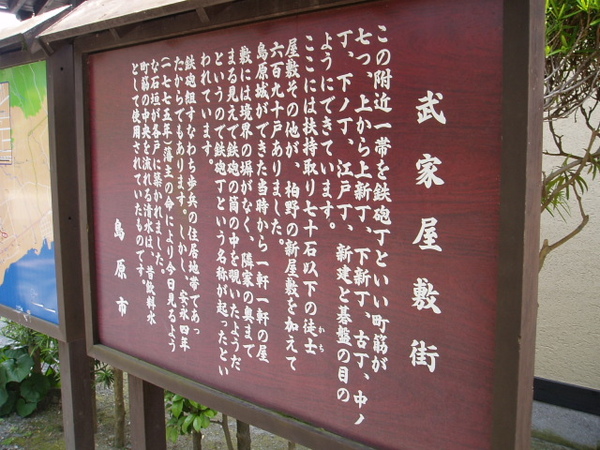 武家屋敷街
この附近一帯を鉄砲丁といい町筋が
七つ、上から上新丁、下新丁、古丁、中ノ
丁、下ノ丁、江戸丁、新建と碁盤の目の
ようにできています。
ここには扶持取り七十石以下の徒士
かち
屋敷その他が、柏野の新屋敷を加えて
六百九十戸ありました。
島原城ができた当時から一軒一軒の屋
敷には境界の塀がなく、隣家の奥まで
まる見えで鉄砲の筒の中を覗いたようだ
というので鉄砲丁という名称が起ったとい
われています。
鉄砲組すなわち歩兵の住居地帯であっ
たからでもあります。しかし、安永四年
(一七七五年)藩主の命により今日見るよう
な石垣が各戸に築かれました。
町筋の中央を流れる清水は、昔飲料水
として使用されていたものです。
島原市